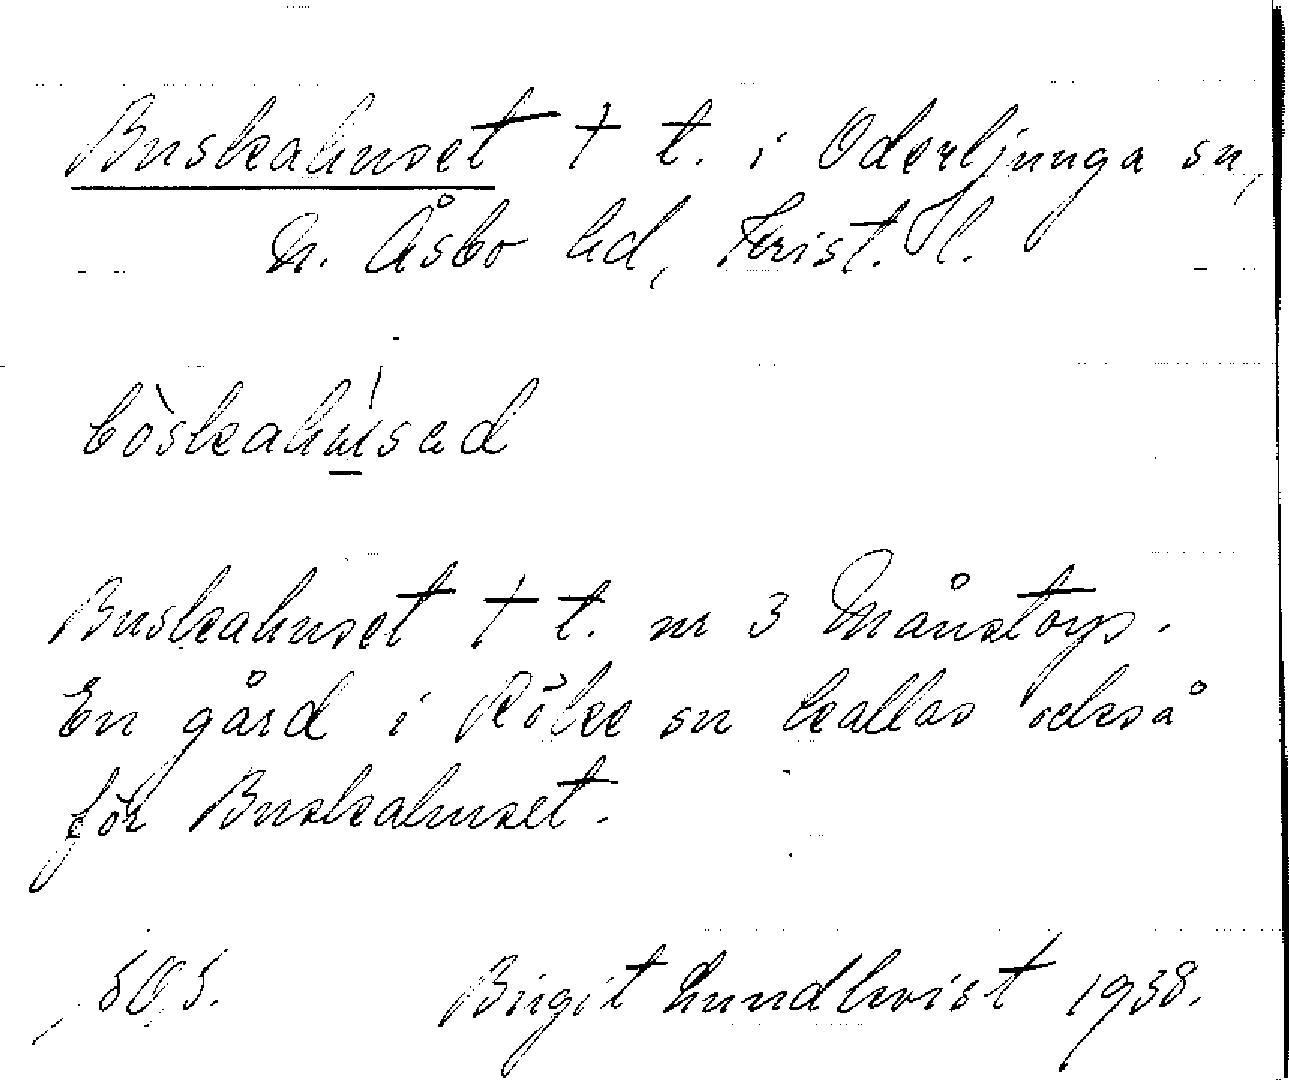 Buskahuset † t. i Oderljunga sn,
N. Åsbo hd, Krist. l.
bòskahúsad
Buskahuset † t. nr 3 Månstorp.
En gård i Röke sn kallas också
för Buskahuset.
505. Birgit Lundkvist 1938.